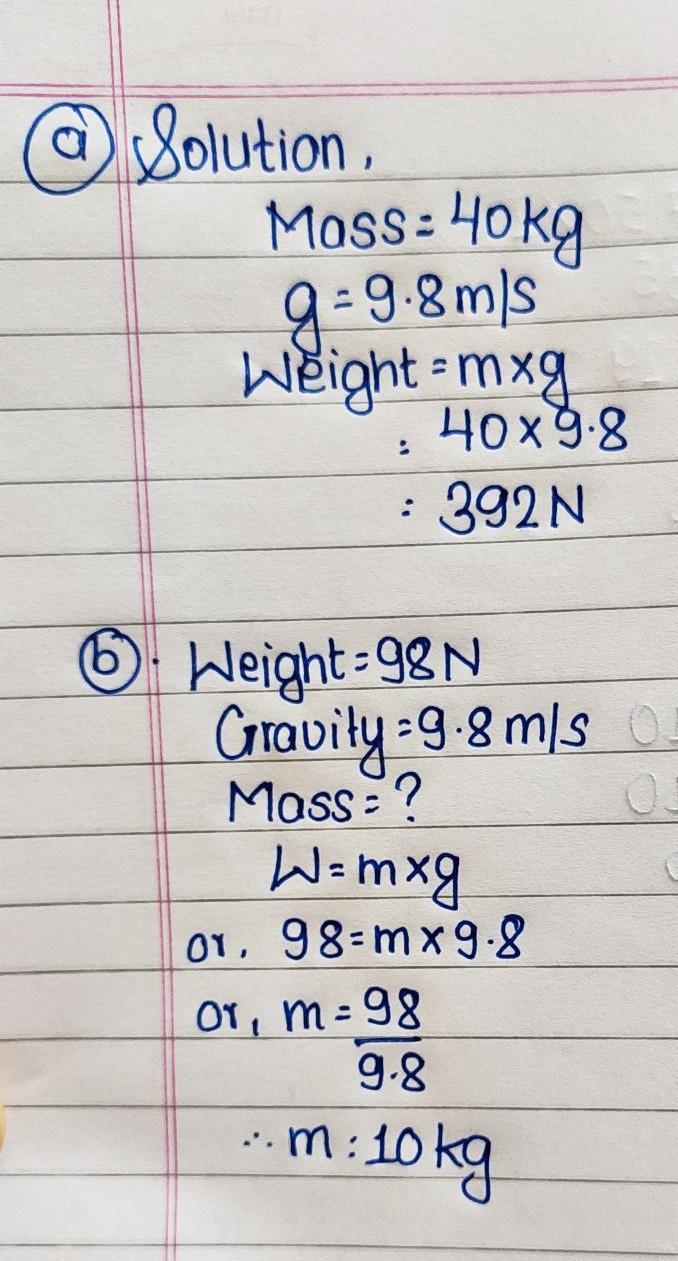 a Solution,
Mass = 40kg
g = 9.8 m/s
Weight = m×g
: 40 × 9.8
: 392N
b. Weight = 98N
Gravity = 9.8 m/s
Mass = ?
W = m×g
or, 98 = m × 9.8
or, m = 98
9.8
∴ m : 10 kg